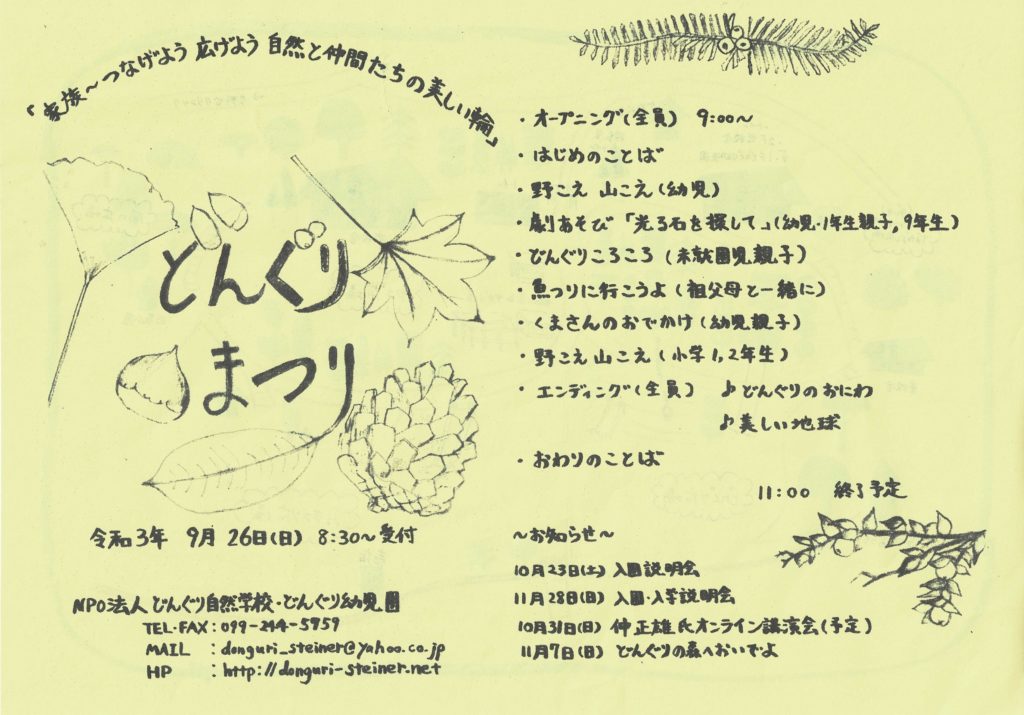 「家族〜つなげよう 広げよう 自然と仲間たちの美しい輪」
どんぐり
まつり
令和3年 9月 26日(日) 8:30〜受付
NPO法人 どんぐり自然学校・どんぐり幼児園
TEL・FAX : 099-294-5959
MAIL : donguri_steiner@yahoo.co.jp
HP : http://donguri-steiner.net
・オープニング(全員) 9:00〜
・はじめのことば
・野こえ 山こえ(幼児)
・劇あそび 「光る石を探して」(幼児・1年生親子, 9年生)
・どんぐりころころ (未就園児親子)
・魚つりに行こうよ (祖父母と一緒に)
・くまさんのおでかけ (幼児親子)
・野こえ山こえ (小学1,2年生)
・エンディング(全員) ♪どんぐりのおにわ
♪美しい地球
・おわりのことば
11:00 終了予定
〜お知らせ〜
10月23日(土) 入園説明会
11月28日(日) 入園・入学説明会
10月31日(日) 仲正雄氏オンライン講演会(予定)
11月7日(日) どんぐりの森へおいでよ